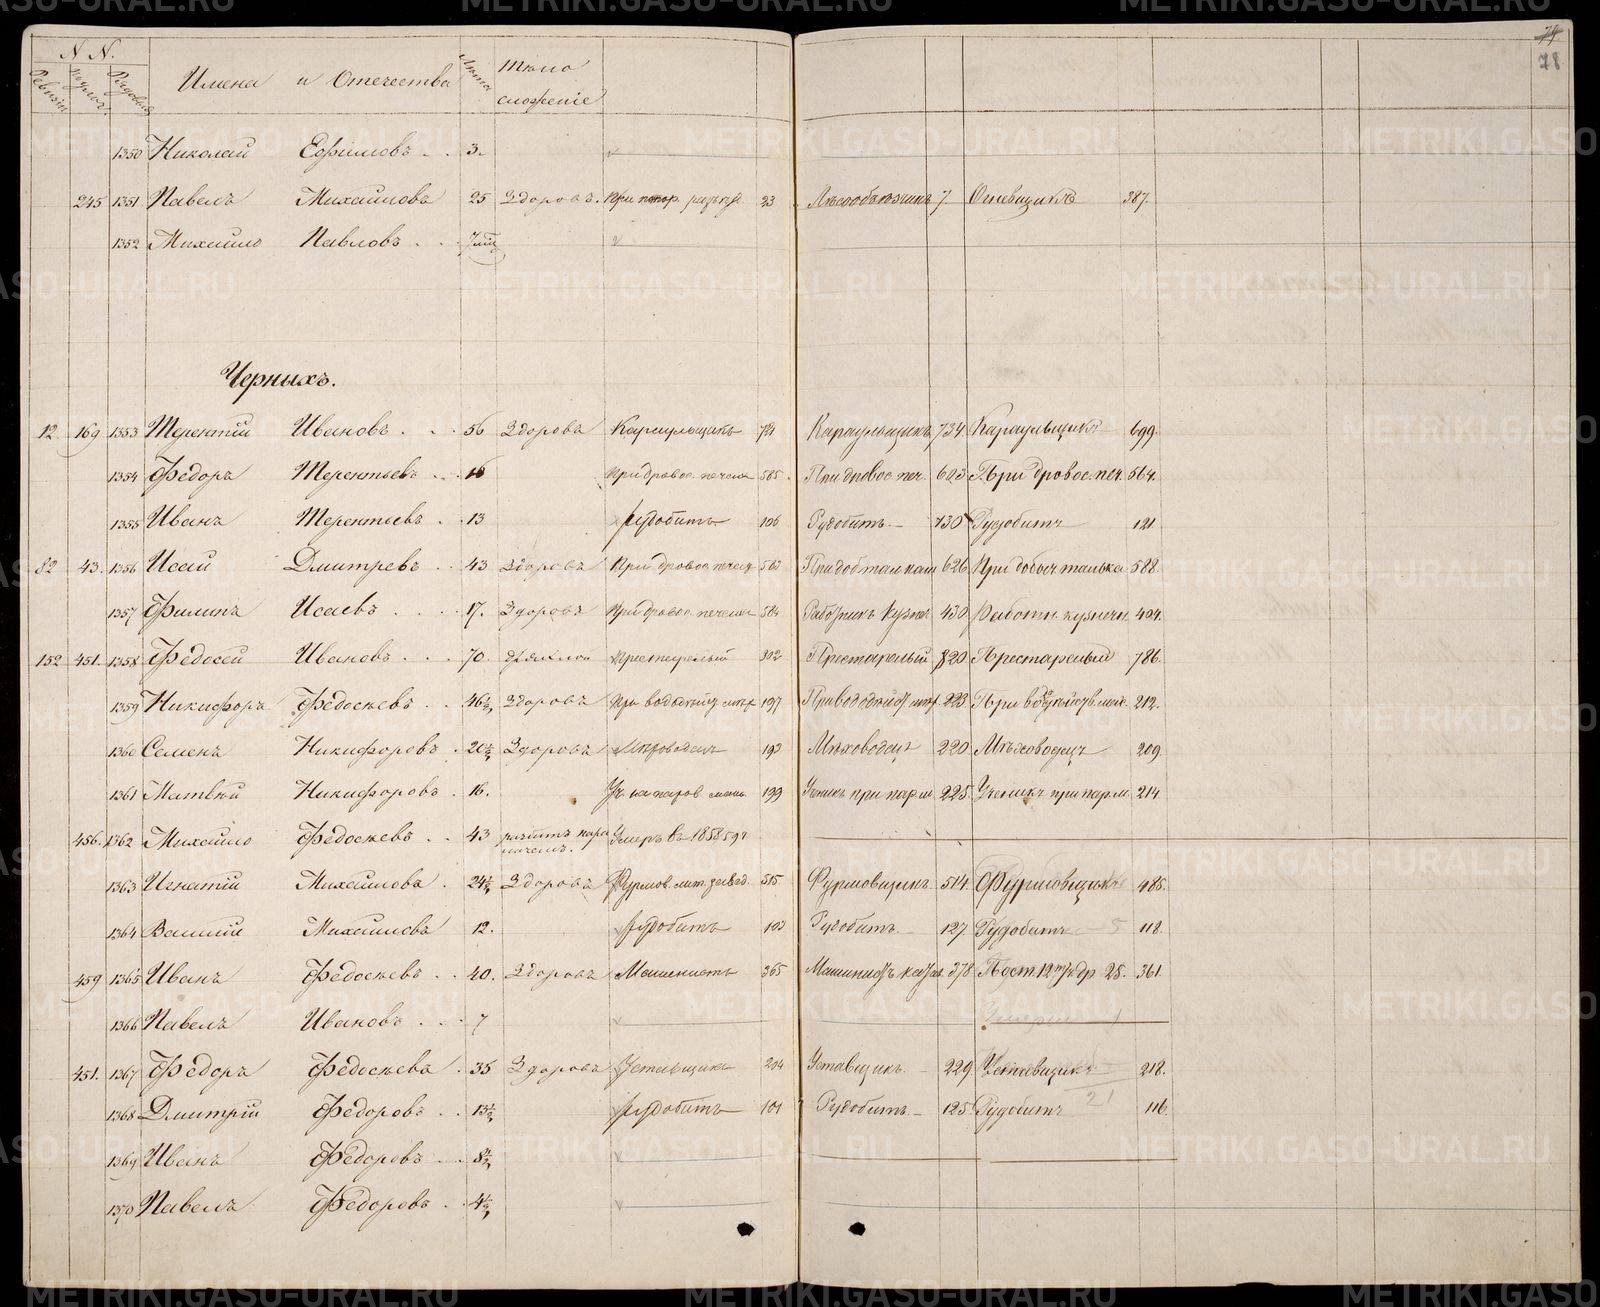 74
78
N. N.
Ревизіи
Рядовые
Имена и Отечества
Лѣта
Тѣло
сложеніе
1350 Николай Ефимовъ 3.
245 1351 Павелъ Михайловъ 25 Здоровъ. При 23 Лѣсообъѣзчикъ 7 Огневщикъ 387.
1352 Михайло Павловъ 7
Черныхъ.
12 169 1353 Терентій Ивановъ 56 Здоровъ Караульщикъ 721 Караульщикъ 734 Караульщикъ 699.
1354 Федоръ Терентьевъ 16 При дровос. печеніи 585. При дровос. печ. 603 При дровос. печ. 564.
1355 Иванъ Терентьевъ 13 Рудобитъ 106 Рудобитъ 130 Рудобитчъ 121
82 43. 1356 Исай Дмитревъ 43 Здоровъ При дровос. печен. 563 При доб. тал. кам. 626 При добыч. талька 588.
1357 Филипъ Исаевъ 17. Здоровъ При дровос. печеніи 584 Работникъ кузнеч. 430 Работн. кузнечн. 404.
152 451. 1358 Федосей Ивановъ 70. Дряхлой Престарелый 802 Престарелый 820 Престарелый 786.
1359 Никифоръ Федосѣевъ 46½ Здоровъ При вододѣйст. мѣх. 197 При вододѣйст. мѣх. 223. При водѣйств. мех. 212.
1360 Семенъ Никифоровъ 20½ Здоровъ Мѣховодецъ 193 Мѣховодецъ 220 Мѣховодецъ 209.
1361 Матвѣй Никифоровъ 16. Уч. на паров. маш. 199 Ученикъ при пар. м. 225. Ученикъ при пар. м. 214.
456. 1362 Михайло Федосѣевъ 43 разбитъ параличемъ. Умеръ въ 1858/59 г.
1363 Игнатій Михайловъ 24½ Здоровъ Фурмов. 515. Фурмовщикъ 514. Фурмовщикъ 485.
1364 Василій Михайловъ 12. Рудобитъ 103 Рудобитъ 127. Рудобитъ 5 118.
459 1365 Иванъ Федосѣевъ 40. Здоровъ Машинистъ 365 Машинистъ 378 Пост. 12 др. 25. 361
1366 Павелъ Ивановъ 7
451. 1367 Федоръ Федосѣевъ 35 Здоровъ Уставщикъ 204 Уставщикъ 229 Уставщикъ 218.
1368 Дмитрій Федоровъ 13½ Рудобитъ 101 Рудобитъ 125 Рудобитъ 21 116.
1369 Иванъ Федоровъ 8½
1370 Павелъ Федоровъ 4½
METRIKI.GASO-URAL.RU